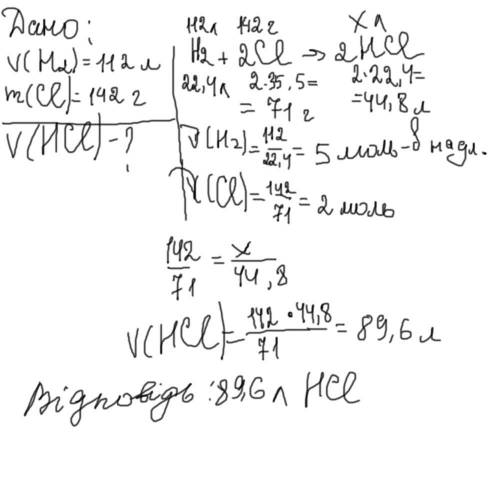 Дано:
V(H2)=112 л
m(Cl)=142 г
V(HCl)-?
112л 142г x л
H2 + 2Cl → 2HCl
22,4л 2·35,5= 2·22,4=
= 71 г =44,8 л
ν(H2)=112/22,4= 5 моль-в надл.
ν(Cl)=142/71= 2 моль
142/71 = x/44,8
V(HCl)=142·44,8/71= 89,6 л
Відповідь:89,6 л HCl